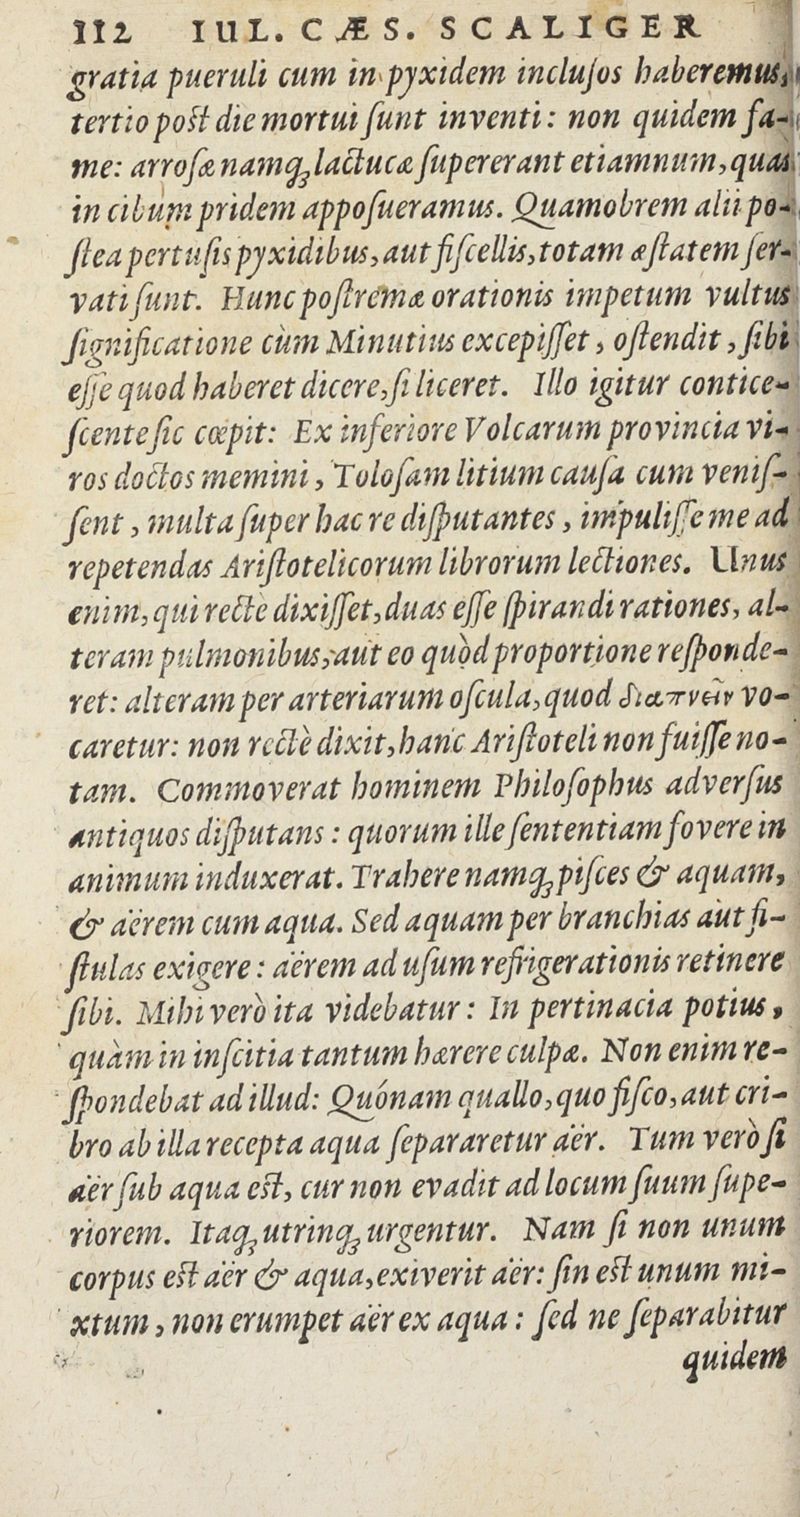 112 IUL. CÆS. SCALIGER
gratia pueruli cum in pyxidem inclusos haberemus,
tertio post die mortui sunt inventi: non quidem fa-
me: arrosæ namq; lactucæ supererant etiamnum, quas
in cibum pridem apposueramus. Quamobrem alii po-
stea pertusis pyxidibus, aut fiscellis, totam æstatem ser-
vati sunt. Hunc postremæ orationis impetum vultus
significatione cùm Minutius excepisset, ostendit, sibi
esse quod haberet dicere, si liceret. Illo igitur contice-
scente sic cœpit: Ex inferiore Volcarum provincia vi-
ros doctos memini, Tolosam litium causa cum venis-
sent, multa super hac re disputantes, impulisse me ad
repetendas Aristotelicorum librorum lectiones. Unus
enim, qui recte dixisset, duas esse spirandi rationes, al-
teram pulmonibus, aut eo quòd proportione responde-
ret: alteram per arteriarum oscula, quod διαπνεῖν vo-
caretur: non rectè dixit, hanc Aristoteli non fuisse no-
tam. Commoverat hominem Philosophus adversus
antiquos disputans: quorum ille sententiam fovere in
animum induxerat. Trahere namq; pisces & aquam,
& aërem cum aqua. Sed aquam per branchias aut fi-
stulas exigere: aërem ad usum refrigerationis retinere
sibi. Mihi verò ita videbatur: In pertinacia potius,
quàm in inscitia tantum hærere culpæ. Non enim re-
spondebat ad illud: Quónam quallo, quo fisco, aut cri-
bro ab illa recepta aqua separaretur aër. Tum verò si
aër sub aqua est, cur non evadit ad locum suum supe-
riorem. Itaq; utrinq; urgentur. Nam si non unum
corpus est aër & aqua, exiverit aër: sin est unum mi-
xtum, non erumpet aër ex aqua: sed ne separabitur
quidem